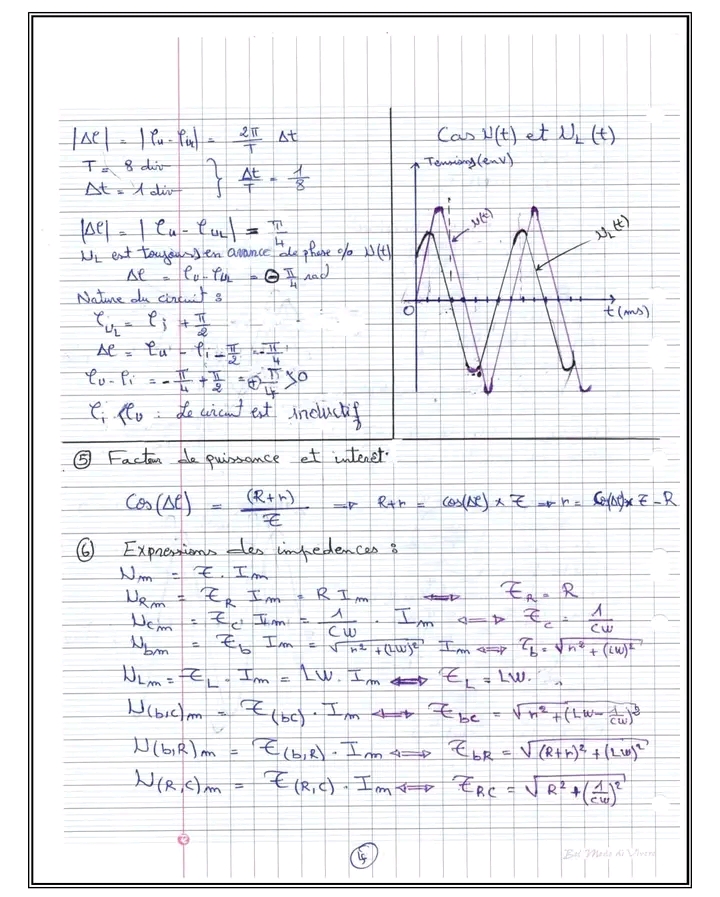 |Δφ| = |φu - φuL| = 2π/T Δt
T = 8 div
Δt = 1 div
Δt/T = 1/8
|Δφ| = |φu - φuL| = π/4
UL est toujours en avance de phase % U(t)
Δφ = φu - φuL = ⊖ π/4 rad
Nature du circuit :
φuL = φi + π/2
Δφ = φu - φi - π/2 = -π/4
φu - φi = -π/4 + π/2 = ⊕ π/4 > 0
φi < φu : Le circuit est inductif
Cas U(t) et UL(t)
Tensions (en V)
u(t)
uL(t)
O
t(ms)
⑤ Facteur de puissance et interet.
Cos(Δφ) = (R+r)/Z ⇒ R+r = cos(Δφ) × Z ⇒ r = Cos(Δφ) × Z - R
⑥ Expressions des impedences :
Um = Z. Im
URm = ZR Im = R Im ⇔ ZR = R
Ucm = Zc. Im = 1/CW . Im ⇔ Zc = 1/CW
Ubm = Zb Im = √(r² + (LW)²) Im ⇔ Zb = √(r² + (LW)²)
ULm = ZL . Im = LW. Im ⇔ ZL = LW.
U(b,c)m = Z(bc) . Im ⇔ Zbc = √(r² + (LW - 1/CW)²)
U(b,R)m = Z(b,R) . Im ⇔ ZbR = √((R+r)² + (LW)²)
U(R,C)m = Z(R,C) . Im ⇔ ZRC = √(R² + (1/CW)²)